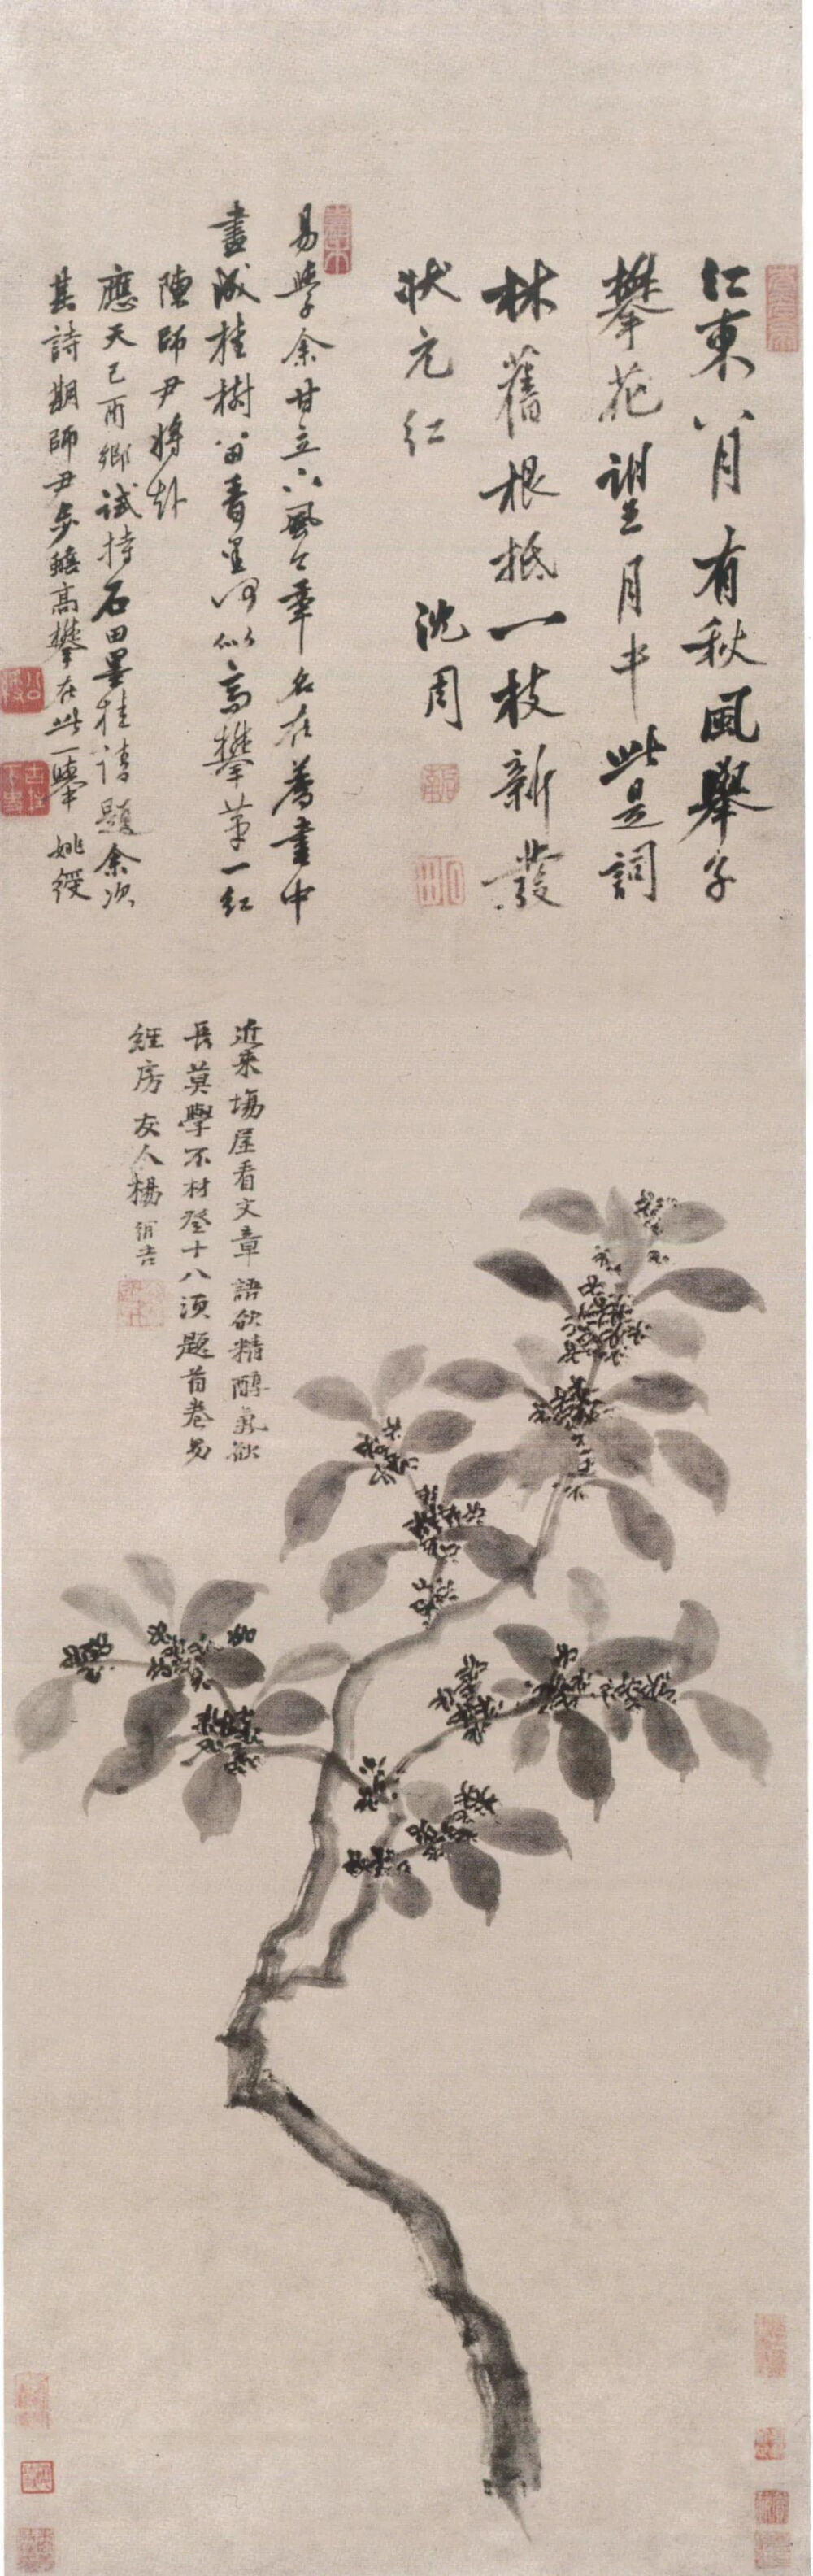 江東八月有秋風舉子
攀花望月中此是詞
林舊根柢一枝新發
狀元紅
沈周
易學余甘立下風今年名在薦書中
畫成桂樹留香 何似高攀第一紅
陳師尹將赴
應天己酉鄉試持石田墨桂請題余次
其詩期師尹 高攀在此一舉 姚綬
近來場屋看文章語欲精醇氣欲
長莫學不材登十八須題首卷易
經房 友人楊